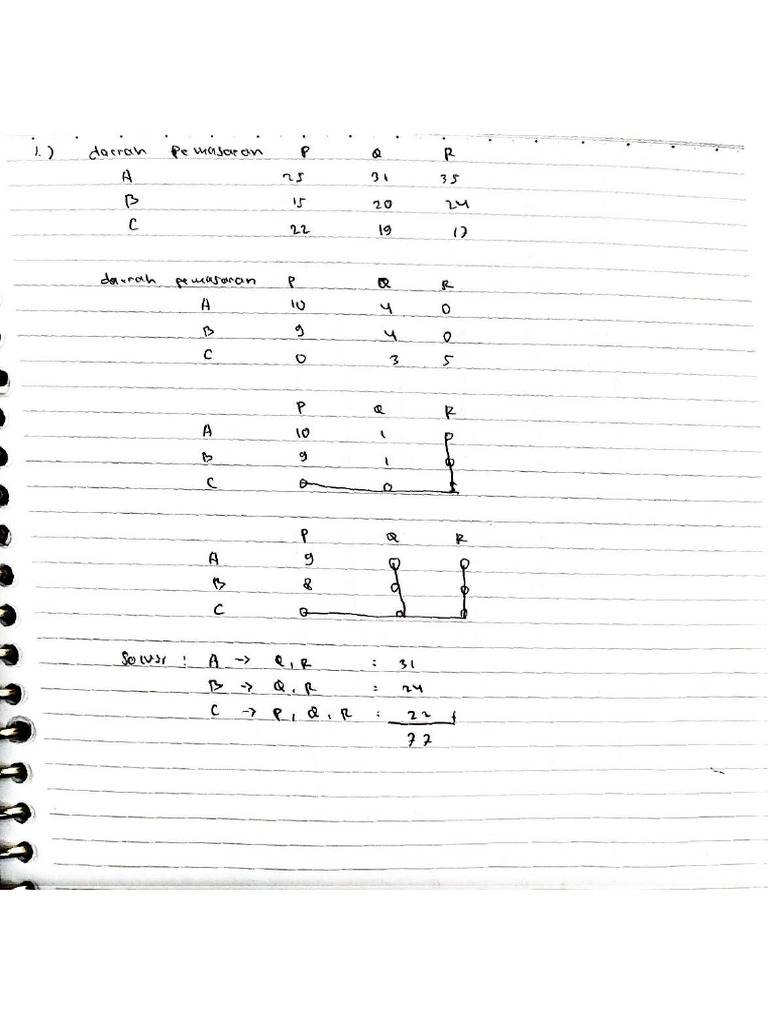 1.) daerah pemasaran P Q R
A 25 31 35
B 15 20 24
C 22 19 17
daerah pemasaran P Q R
A 10 4 0
B 9 4 0
C 0 3 5
P Q R
A 10 1 0
B 9 1 0
C 0 0 5
P Q R
A 9 0 0
B 8 0 0
C 0 0 0
Solusi : A → Q, R : 31
B → Q, R = 24
C → P, Q, R : 22 +
77